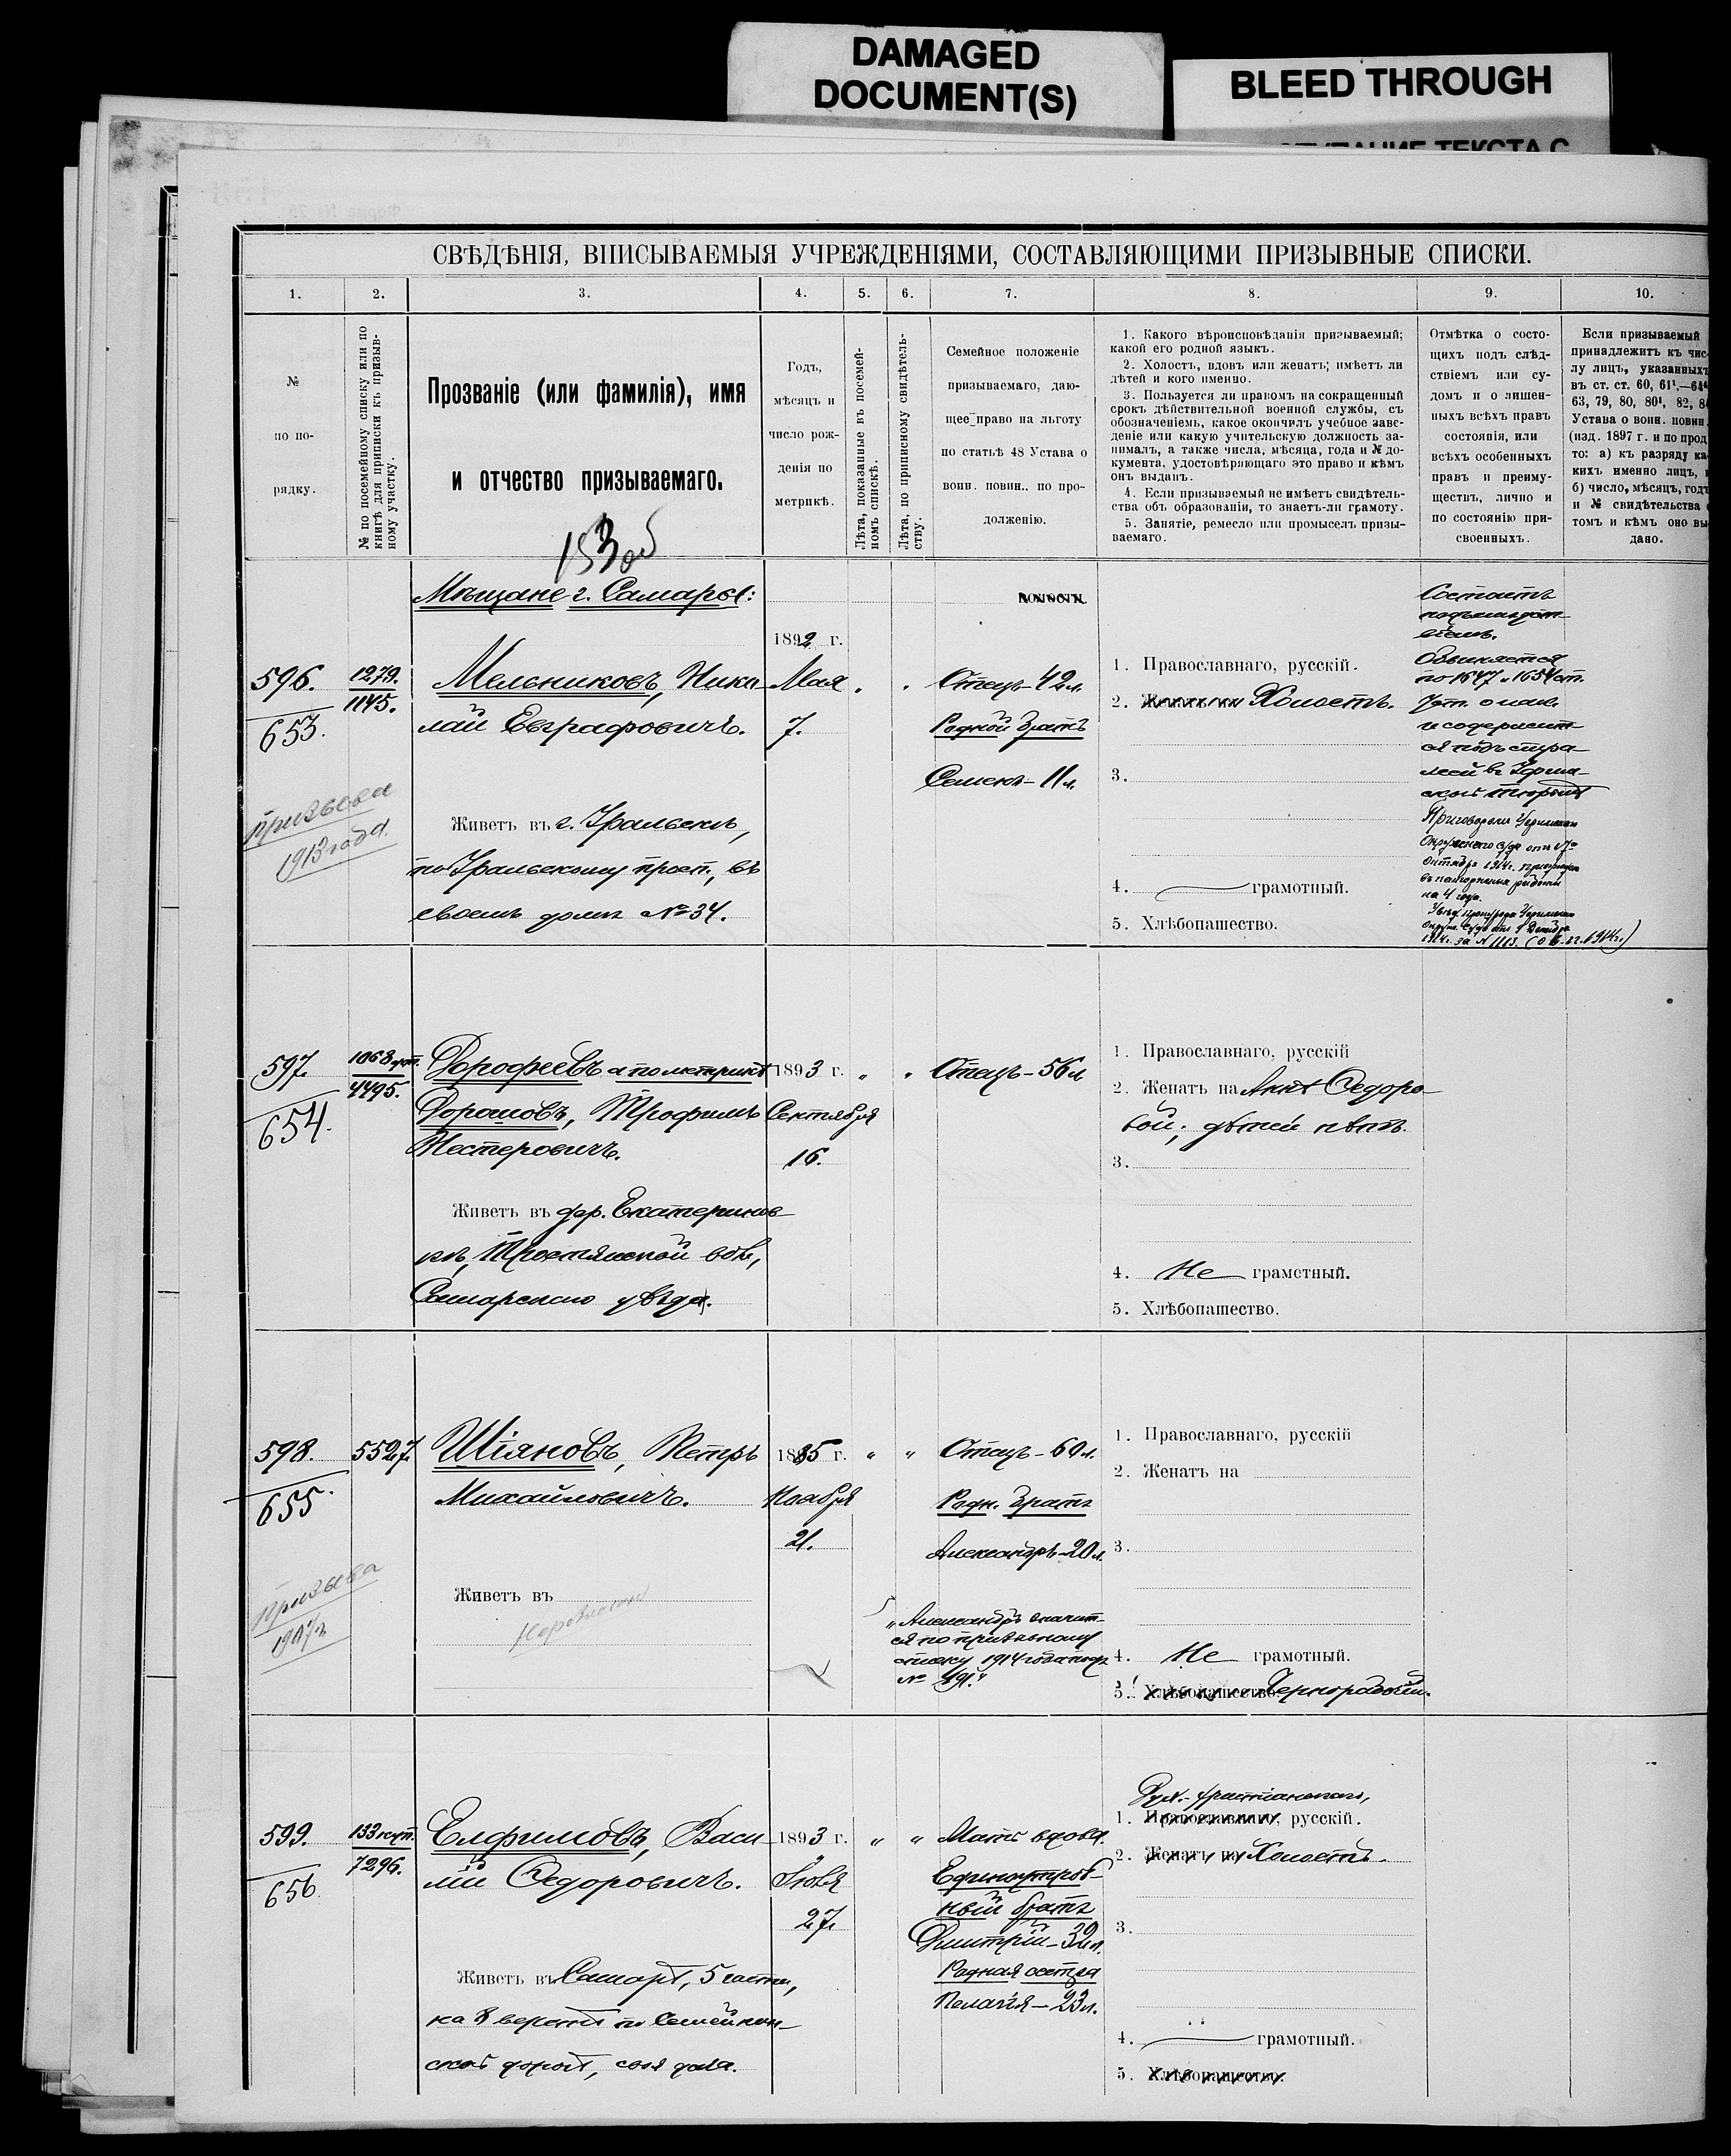 DAMAGED
DOCUMENT(S)
BLEED THROUGH
СВѢДѢНІЯ, ВПИСЫВАЕМЫЯ УЧРЕЖДЕНІЯМИ, СОСТАВЛЯЮЩИМИ ПРИЗЫВНЫЕ СПИСКИ.
1. 2. 3. 4. 5. 6. 7. 8. 9. 10.
№
по по-
рядку.
№ по посемейному списку или по
книгѣ для приписки къ призыв-
ному участку.
Прозваніе (или фамилія), имя
и отчество призываемаго.
Годъ,
мѣсяцъ и
число рож-
денія по
метрикѣ.
Лѣта, показанные въ посемей-
номъ спискѣ.
Лѣта, по приписному свидѣтель-
ству.
Семейное положеніе
призываемаго, даю-
щее право на льготу
по статьѣ 48 Устава о
воин. повин., по про-
долженію.
1. Какого вѣроисповѣданія призываемый;
какой его родной языкъ.
2. Холостъ, вдовъ или женатъ; имѣетъ ли
дѣтей и кого именно.
3. Пользуется ли правомъ на сокращенный
срокъ дѣйствительной военной службы, съ
обозначеніемъ, какое окончилъ учебное заве-
деніе или какую учительскую должность за-
нималъ, а также числа, мѣсяца, года и № до-
кумента, удостовѣряющаго это право и кѣмъ
онъ выданъ.
4. Если призываемый не имѣетъ свидѣтель-
ства объ образованіи, то знаетъ-ли грамоту.
5. Занятіе, ремесло или промыселъ призы-
ваемаго.
Отмѣтка о состо-
щихъ подъ слѣд-
ствіемъ или су-
домъ и о лишен-
ныхъ всѣхъ правъ
состоянія, или
всѣхъ особенныхъ
правъ и преиму-
ществъ, лично и
по состоянію при-
своенныхъ.
Если призываемый
принадлежитъ къ чис-
лу лицъ, указанныхъ
въ ст. ст. 60, 61¹.—64
63, 79, 80, 80¹, 82,
Устава о воин. повин.
(изд. 1897 г. и по прод
то: а) къ разряду ка-
кихъ именно лицъ,
б) число, мѣсяцъ, годъ
и № свидѣтельства
томъ и кѣмъ оно вы
дано.
153 об
Мѣщане г. Самары:
волости
596.
653.
Призыва
1913 года
1279.
1145.
Мельниковъ, Нико
лай Евграфовичъ.
Живетъ въ г. Уральскѣ,
по Уральскому просп., въ
своемъ домѣ № 34.
1892 г.
Мая
7.
Отецъ - 42 л.
Родной братъ
Семенъ - 11 л.
1. Православнаго, русскій.
2. Женатъ на Холостъ.
3.
4. грамотный.
5. Хлѣбопашество.
Состоитъ
подъ
Обвиняется
по 1647 и 1654 ст.
Улож. о нак.
и содержит
ся подъ стра
жей въ
Приговоромъ
Окружнаго суда отъ
октября 1914 г.
въ каторжныя работы
на 4 года.
1914 г. за № 1113.
597.
654.
1068 куп.
4495.
Дорофеевъ а по метрикѣ
Дорошовъ, Трофимъ
Нестеровичъ.
Живетъ въ дер. Екатеринов
кѣ, Тростянской вол.,
Самарскаго уѣзда.
1893 г.
Сентября
16.
Отецъ - 56 л.
1. Православнаго, русскій
2. Женатъ на Аннѣ Федоро-
вой; дѣтей нѣтъ.
3.
4. Не грамотный.
5. Хлѣбопашество.
598.
655.
Призыва
1907 г.
5527.
Шіяновъ, Петръ
Михайловичъ.
Живетъ въ
1885 г.
Ноября
21.
Отецъ - 60 л.
Родн. братъ
Александръ - 20 л.
"Александръ значит-
ся по призывному
списку 1914 года подъ
№ 491."
1. Православнаго, русскій
2. Женатъ на
3.
4. Не грамотный.
5. Хлѣбопашество. Чернорабочій.
599.
656.
133 куп.
7296.
Елфимовъ, Васи
лій Федоровичъ.
Живетъ въ Самарѣ, 5 части,
на 8 верстѣ по Семейкин-
ской дорогѣ, своя дача.
1893 г.
Іюля
27.
Мать вдова.
Единоутроб-
ный братъ
Дмитрій - 32 л.
Родная сестра
Пелагія - 23 л.
Дух.-христіанскаго,
1. Православнаго, русскій.
2. Женатъ на Холостъ.
3.
4. грамотный.
5. Хлѣбопашество.